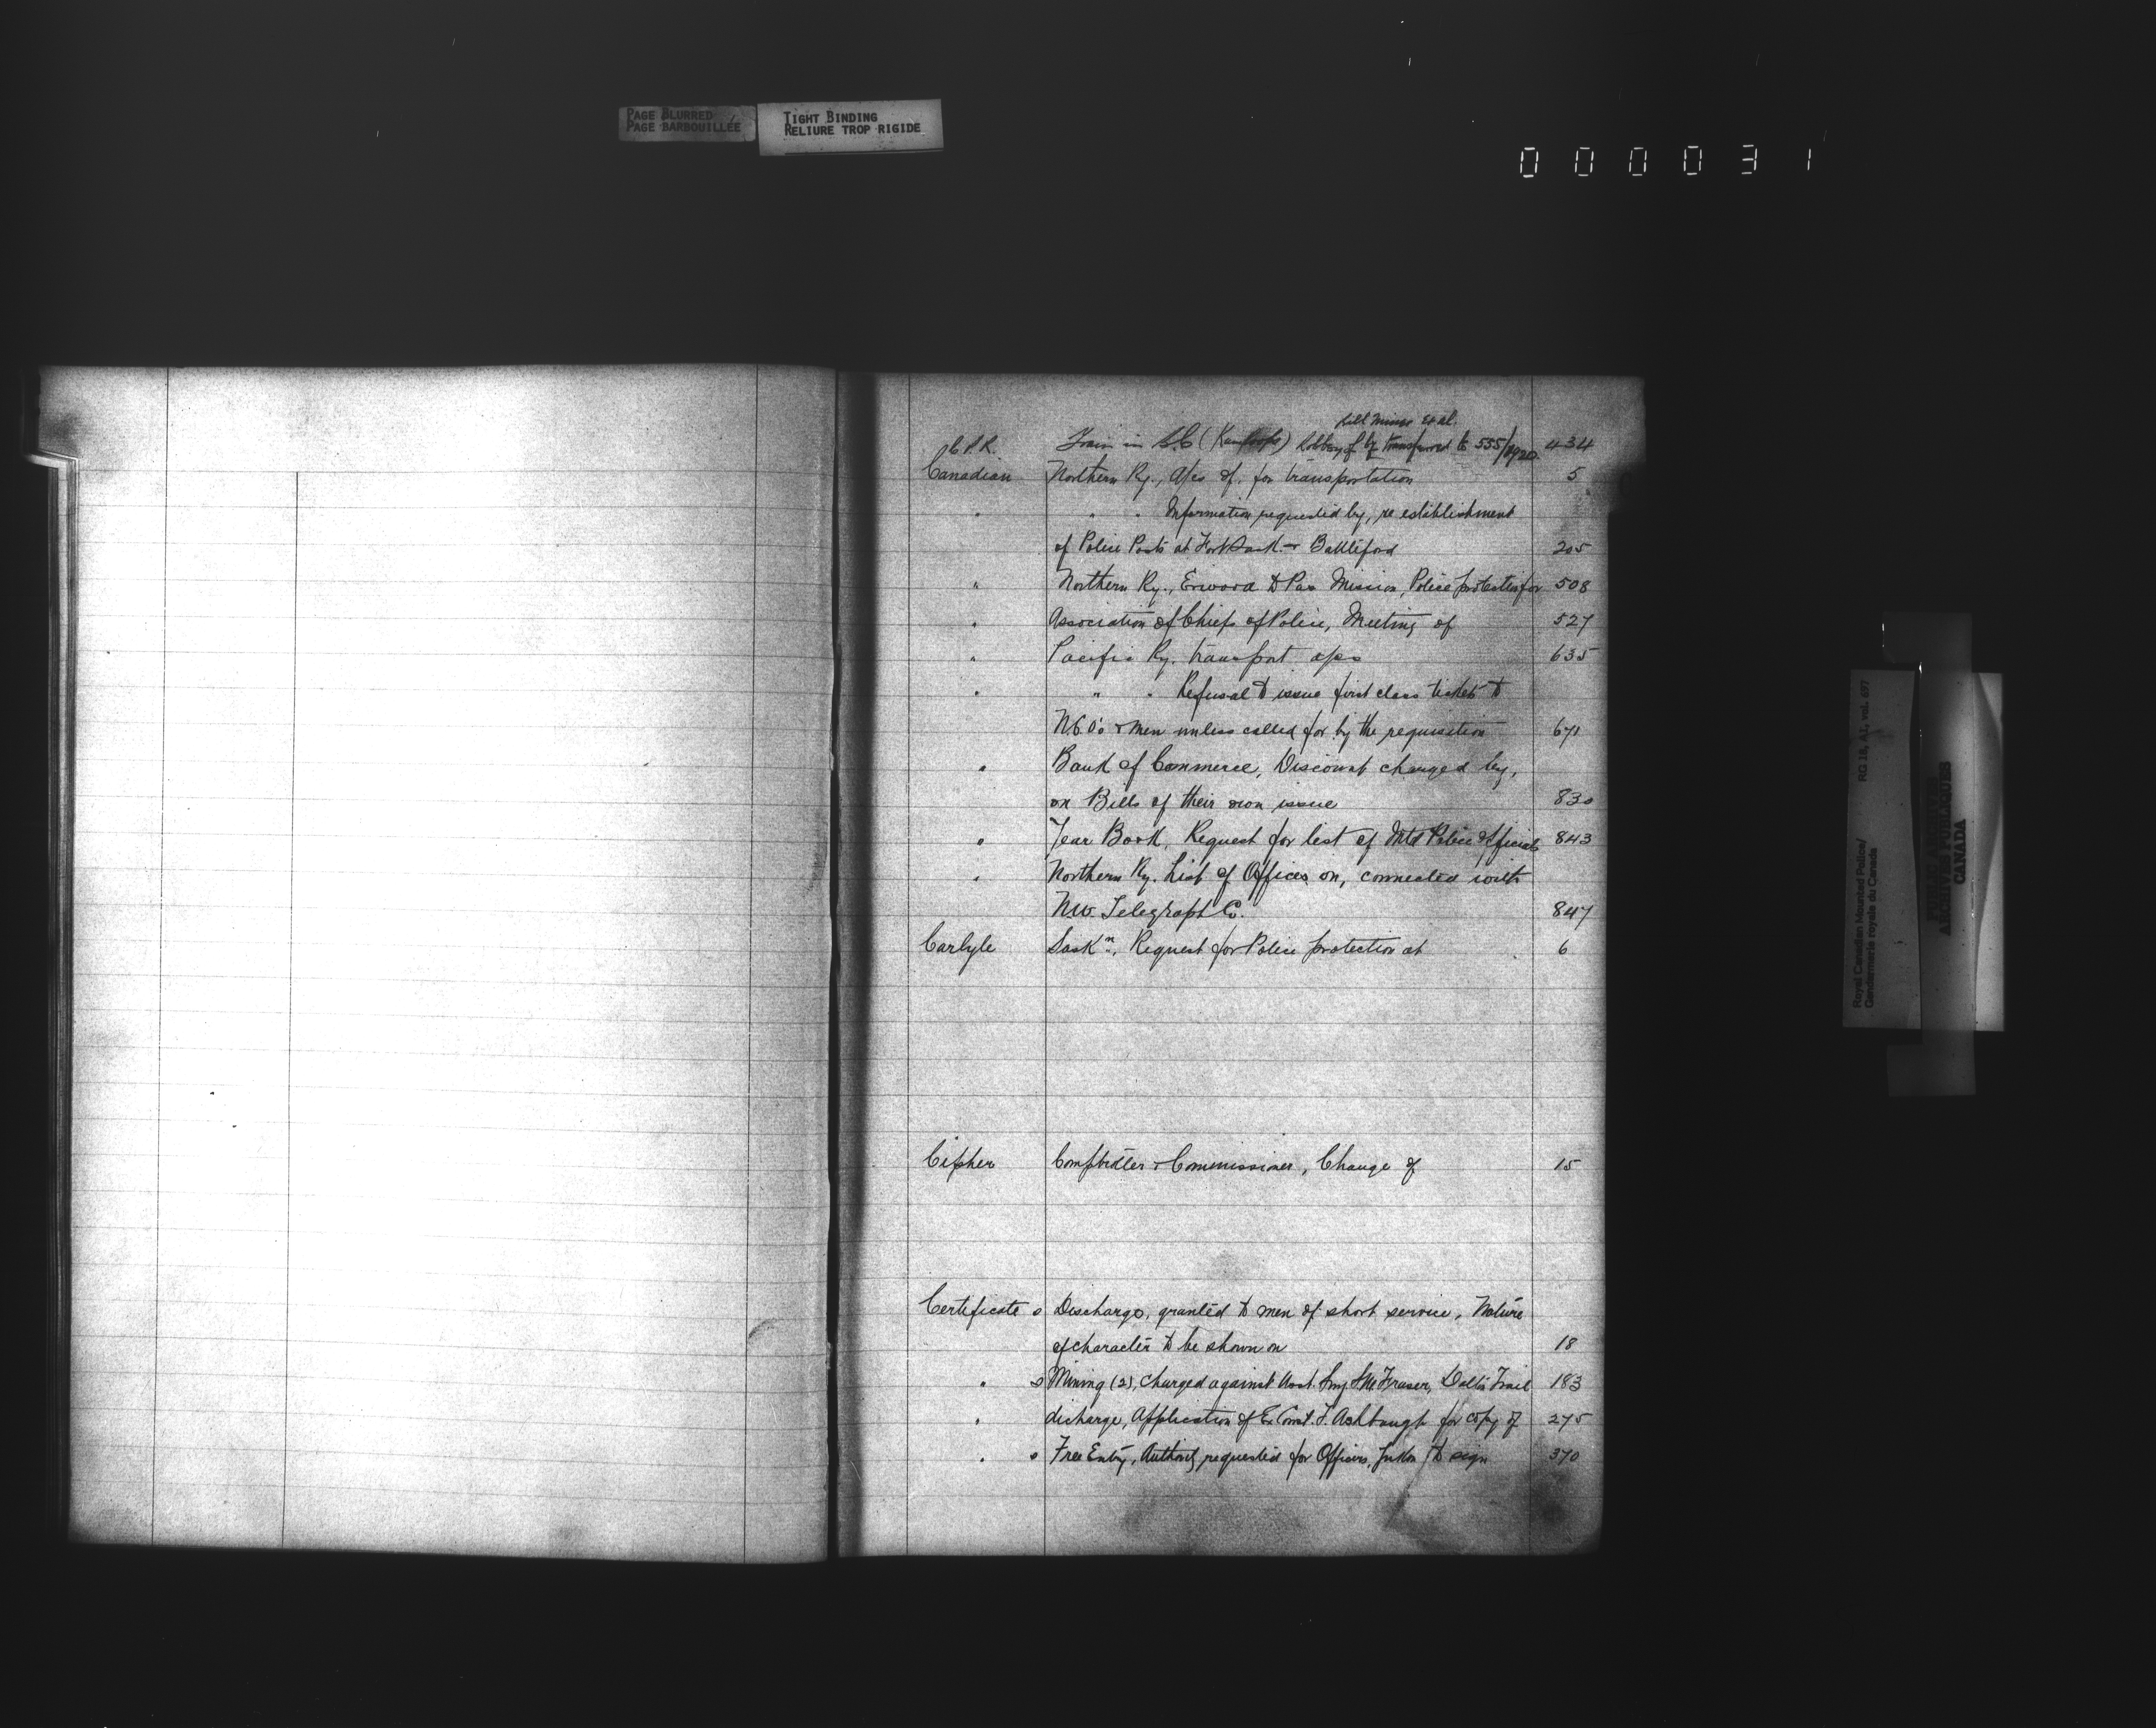 PAGE BLURRED
PAGE BARBOUILLÉE
TIGHT BINDING
RELIURE TROP RIGIDE
000031
Bill Miner et al.
C.P.R. Train in B.C (Kamloops) Robbery of by transferred to 555/1920 434
Canadian Northern Ry., A/cs of, for transportation 5
" " " Information requested by, re establishment
of Police Posts at Fort Sask. & Battleford 205
" Northern Ry., Erwood to Pas Mission, Police protection for 508
" Association of Chiefs of Police, Meeting of 527
" Pacific Ry. transport a/cs 635
" " " Refusal to issue first class tickets to
N.C.O's & men unless called for by the requisition 671
" Bank of Commerce, Discount charged by,
on Bills of their own issue 830
" Year Book, Request for list of Mtd Police Officials 843
" Northern Ry. List of Offices on, connected with
N.W. Telegraph Co. 847
Carlyle Saskn., Request for Police protection at 6
Cipher Comptroller & Commissioner, Change of 15
Certificate s Discharge, granted to men of short service, Nature
of character to be shown on 18
" s Mining (2), charged against Asst. Surg Fraser, Dalton Trail 183
" dicharge, Application of Ex Const. T. Ashbaugh for copy of 275
" s Free Entry, Authority requested for Officers, Yukon to sign 370
Royal Canadian Mounted Police/
Gendarmerie royale du Canada
RG 18, A1, vol. 697
PUBLIC ARCHIVES
ARCHIVES PUBLIQUES
CANADA